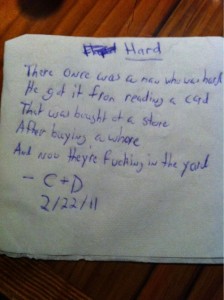 Hard
There once was a man who was hard
He got it from reading a card
That was bought at a store
After buying a whore
And now they're fucking in the yard
- C+D
2/22/11